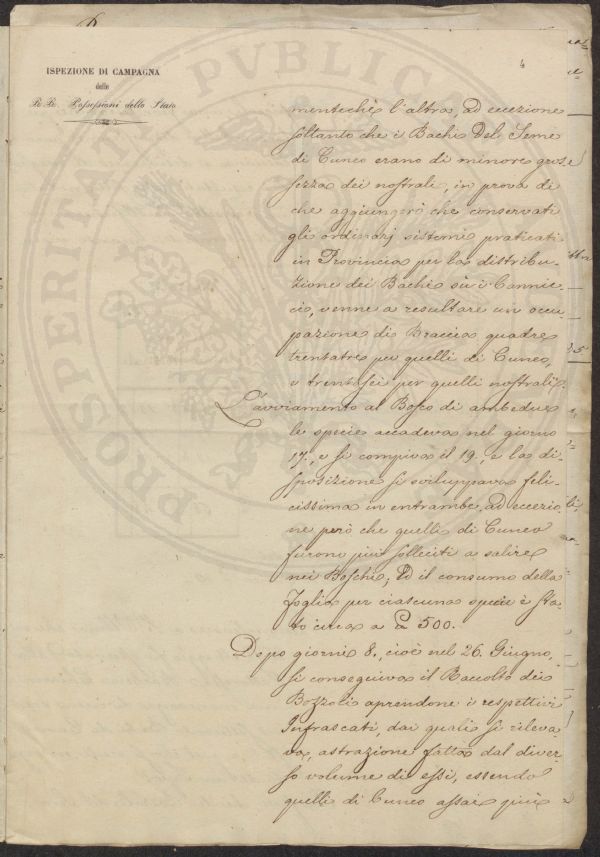 ISPEZIONE DI CAMPAGNA
delle
Possessioni dello Stato
4
mentechè l'altra, ad eccezione
soltanto che i Bachi del Seme
di Cuneo erano di minore gros
sezza dei nostrali, in prova di
che aggiungerò che conservati
gli ordinarj sistemi praticati
in Provincia per la distribu-
zione dei Bachi sù i Cannic-
ci, venne a resultare un occu
pazione di Braccia quadre
trentatre per quelli di Cuneo,
e trentasei per quelli nostrali.
L'avviamento al Bosco di ambedue
le specie accadeva nel giorno
17., e si compiva il 19., e la di-
sposizione si sviluppava feli-
cissima in entrambe, ad eccezio
ne però che quelli di Cuneo
furono più solleciti a salire
nei Boschi; Ed il consumo della
foglia per ciascuna specie è sta-
to circa a 500.
Dopo giorni 8., cioè nel 26. Giugno,
si conseguiva il Raccolto dei
Bozzoli aprendone i respettivi
Infrascati, dai quali si rileva
va, astrazione fatta dal diver-
so volume di essi, essendo
quelli di Cuneo assai più
PROSPERITAS PVBLICA